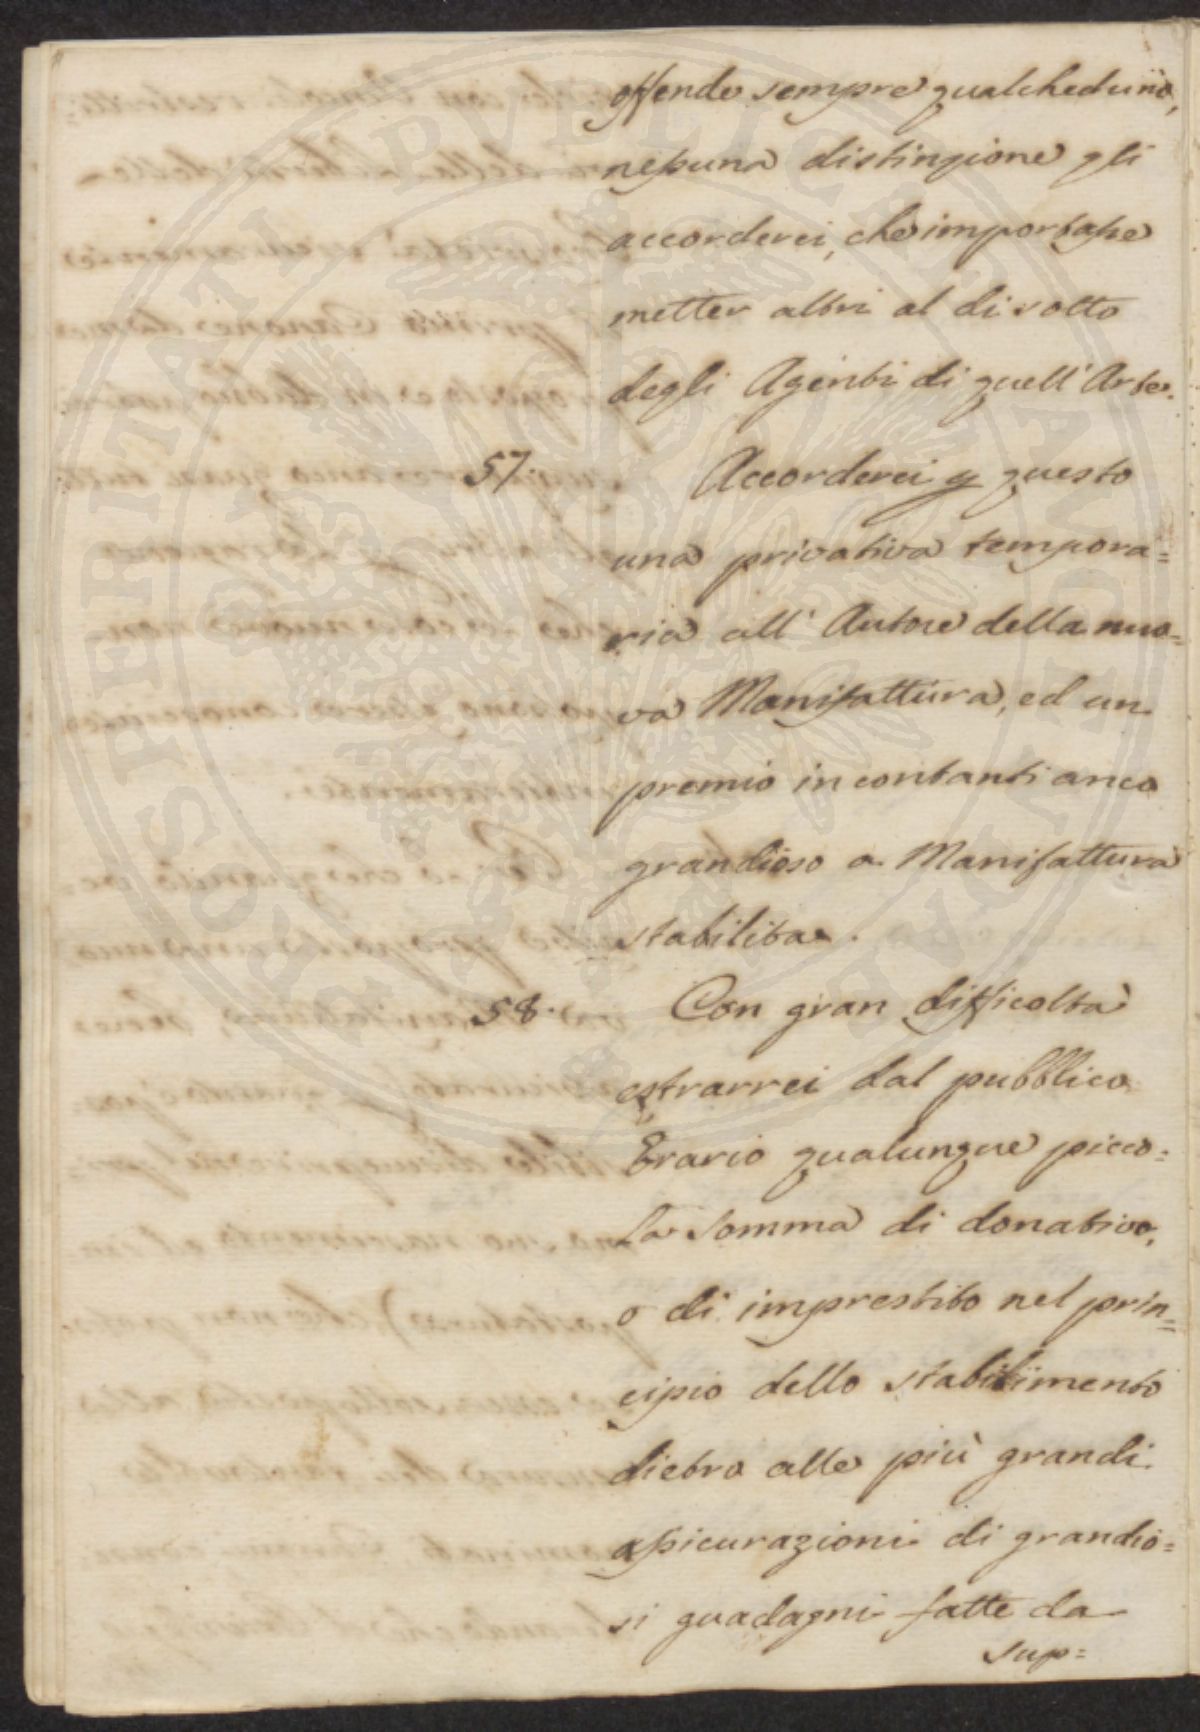 offende sempre qualcheduno,
nessuna distinzione gli
accorderei, che importasse
metter altri al di sotto
degli Agenti di quell'Arte.
57. Accorderei p questo
una privativa tempora=
ria all'Autore della nuo=
va Manifattura, ed un
premio in contanti anco
grandioso a Manifattura
stabilita.
58. Con gran difficoltà
estrarrei dal pubblico
Erario qualunque picco=
la somma di donativo,
o di imprestito nel prin=
cipio dello stabilimento
dietro alle più grandi
assicurazioni di grandio=
si guadagni fatte da
sup=
PROSPERITATI PVBLICAE AVGENDAE